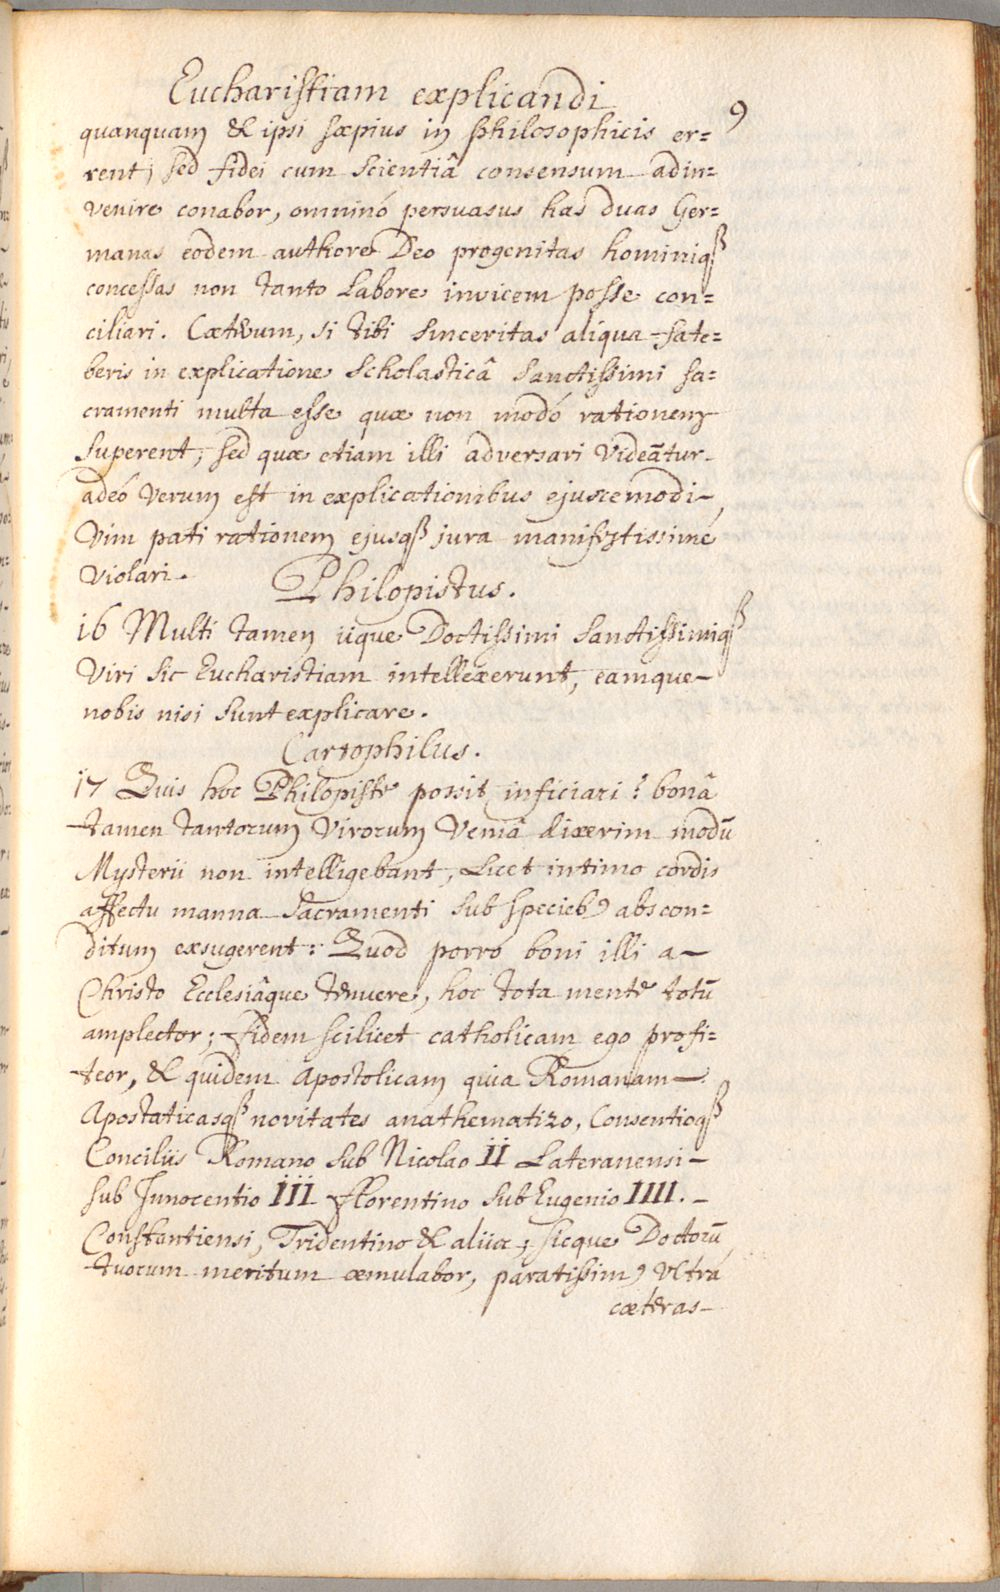 Eucharistiam explicandi
9
quanquam & ipsi sæpius in philosophicis er=
rent; sed fidei cum scientiâ consensum adin=
venire conabor, omninó persuasus has duas Ger=
manas eodem authore Deo progenitas hominiqꝫ
concessas non tanto Labore invicem posse con=
ciliari. Cæterum, si tibi sinceritas aliqua fate=
beris in explicatione Scholasticâ Sanctissimi sa=
cramenti multa esse quæ non modó rationem
superent, sed quæ etiam illi adversari videātur
adeó verum est in explicationibus ejuscemodi
Vim pati rationem ejusqꝫ jura manifestissimé
violari.
Philopistus.
16 Multi tamen iique Doctissimi Sanctissimiqꝫ
Viri sic Eucharistiam intellexerunt, eamque
nobis nisi sunt explicare.
Cartophilus.
17 Quis hoc Philopiste possit inficiari? bonâ
tamen tantorum Virorum Veniâ dixerim modū
Mysterii non intelligebant, Licet intimo cordis
affectu manna Sacramenti sub specieb9 abscon=
ditum exsugerent: Quod porró boni illi a
Christo Ecclesiâque tenuere, hoc tota mente totū
amplector; fidem scilicet catholicam ego profi=
teor, & quidem Apostolicam quia Romanam
Apostaticasqꝫ novitates anathematizo, Consentioqꝫ
Conciliis Romano sub Nicolao II Lateranensi
sub Innocentio III florentino sub Eugenio IIII.
Constantiensi, Tridentino & aliis; sicque Doctorū
tuorum meritum æmulabor, paratissim9 Ultrá
cæteras